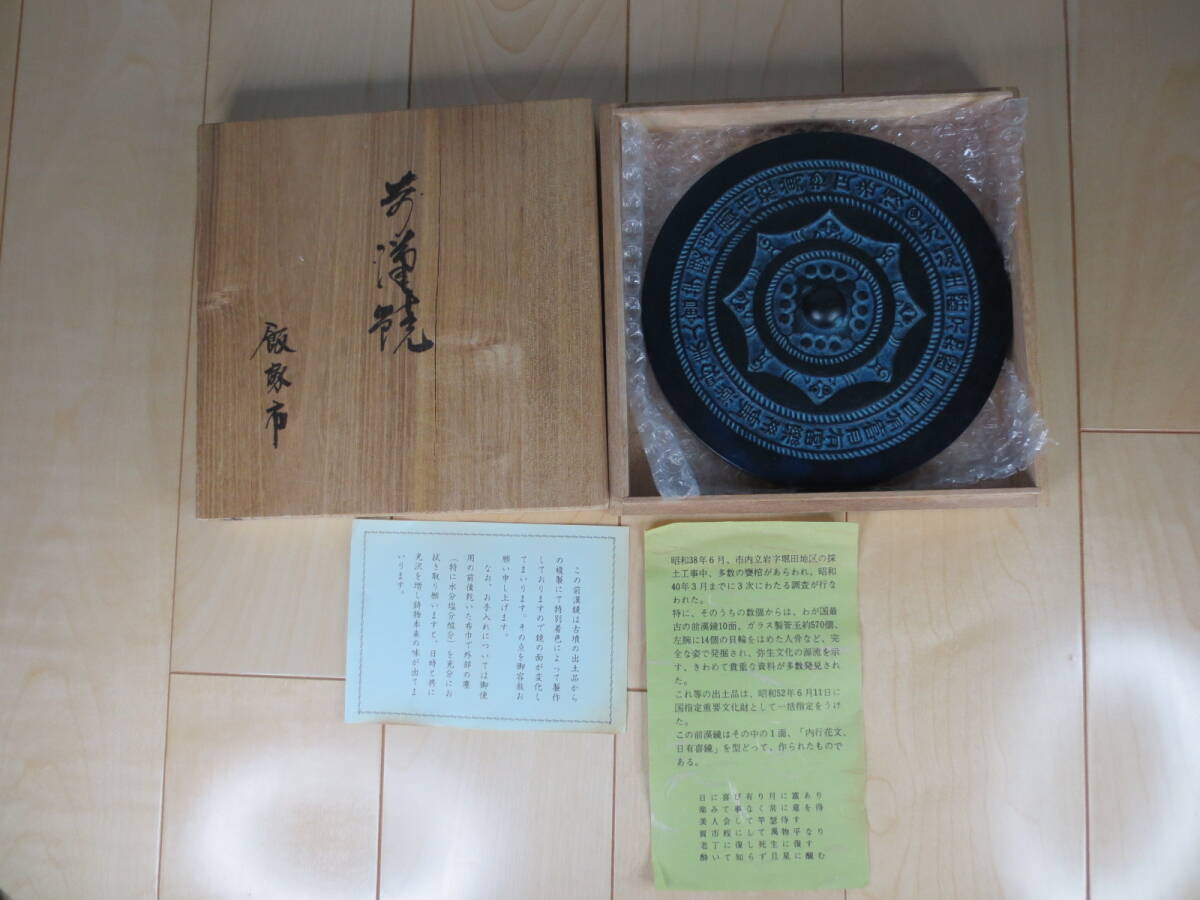 前漢鏡
飯塚市
この前漢鏡は古墳の出土品から
の複製にて特別着色によって製作
しておりますので鏡の面が変化し
てまいります。その点を御容赦お
願い申し上げます。
なお、お手入れについては御使
用の前後乾いた布巾で外部の塵
(特に水分塩分酸分)を充分にお
拭き取り願いますと、日時と共に
光沢を増し鋳物本来の味が出てま
いります。
昭和38年6月、市内立岩字堀田地区の採
土工事中、多数の甕棺があらわれ、昭和
40年3月までに3次にわたる調査が行な
われた。
特に、そのうちの数個からは、わが国最
古の前漢鏡10面、ガラス製管玉約570個、
左腕に14個の貝輪をはめた人骨など、完
全な姿で発掘され、弥生文化の源流を示
す、きわめて貴重な資料が多数発見され
た。
これ等の出土品は、昭和52年6月11日に
国指定重要文化財として一括指定をうけ
た。
この前漢鏡はその中の1面、「内行花文、
日有喜鏡」を型どって、作られたもので
ある。
日に喜び有り月に富あり
楽みて事なく常に意を得
美人会して竽瑟侍す
賈市程にして萬物平なり
老丁に復し死生に復す
酔いて知らず旦星に醒む